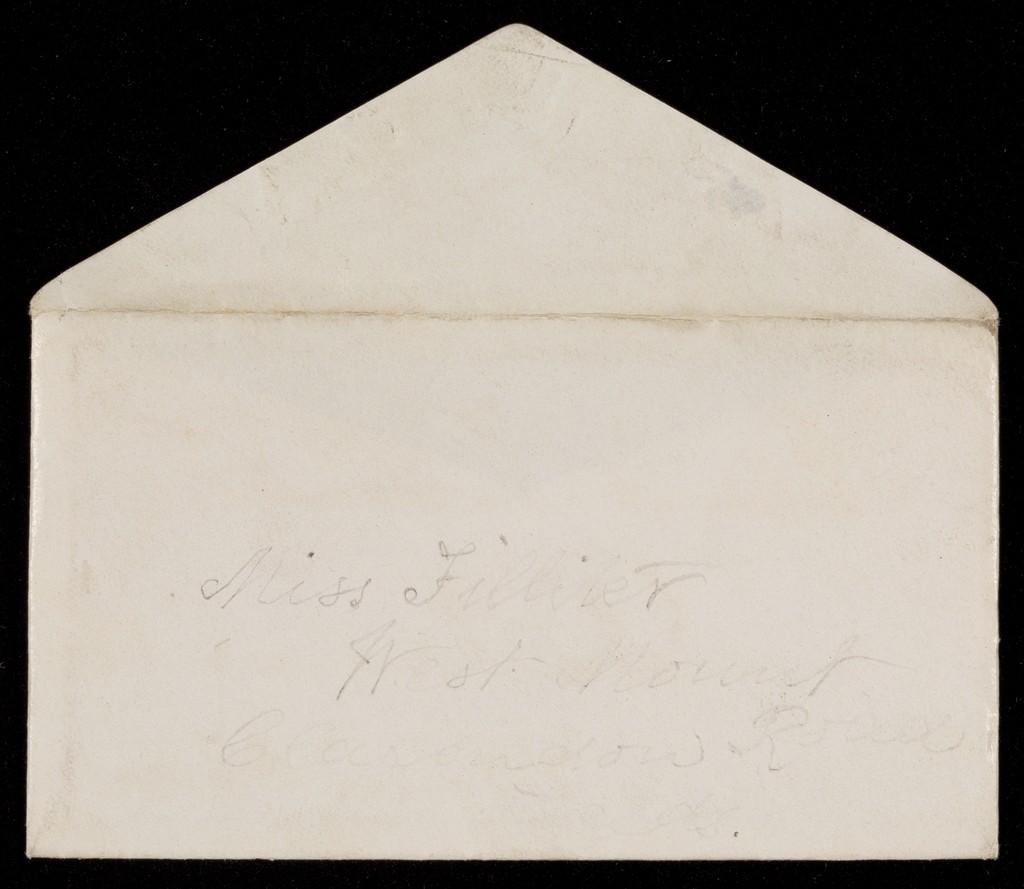 Miss Filliter
West Mount
Clarendon Road